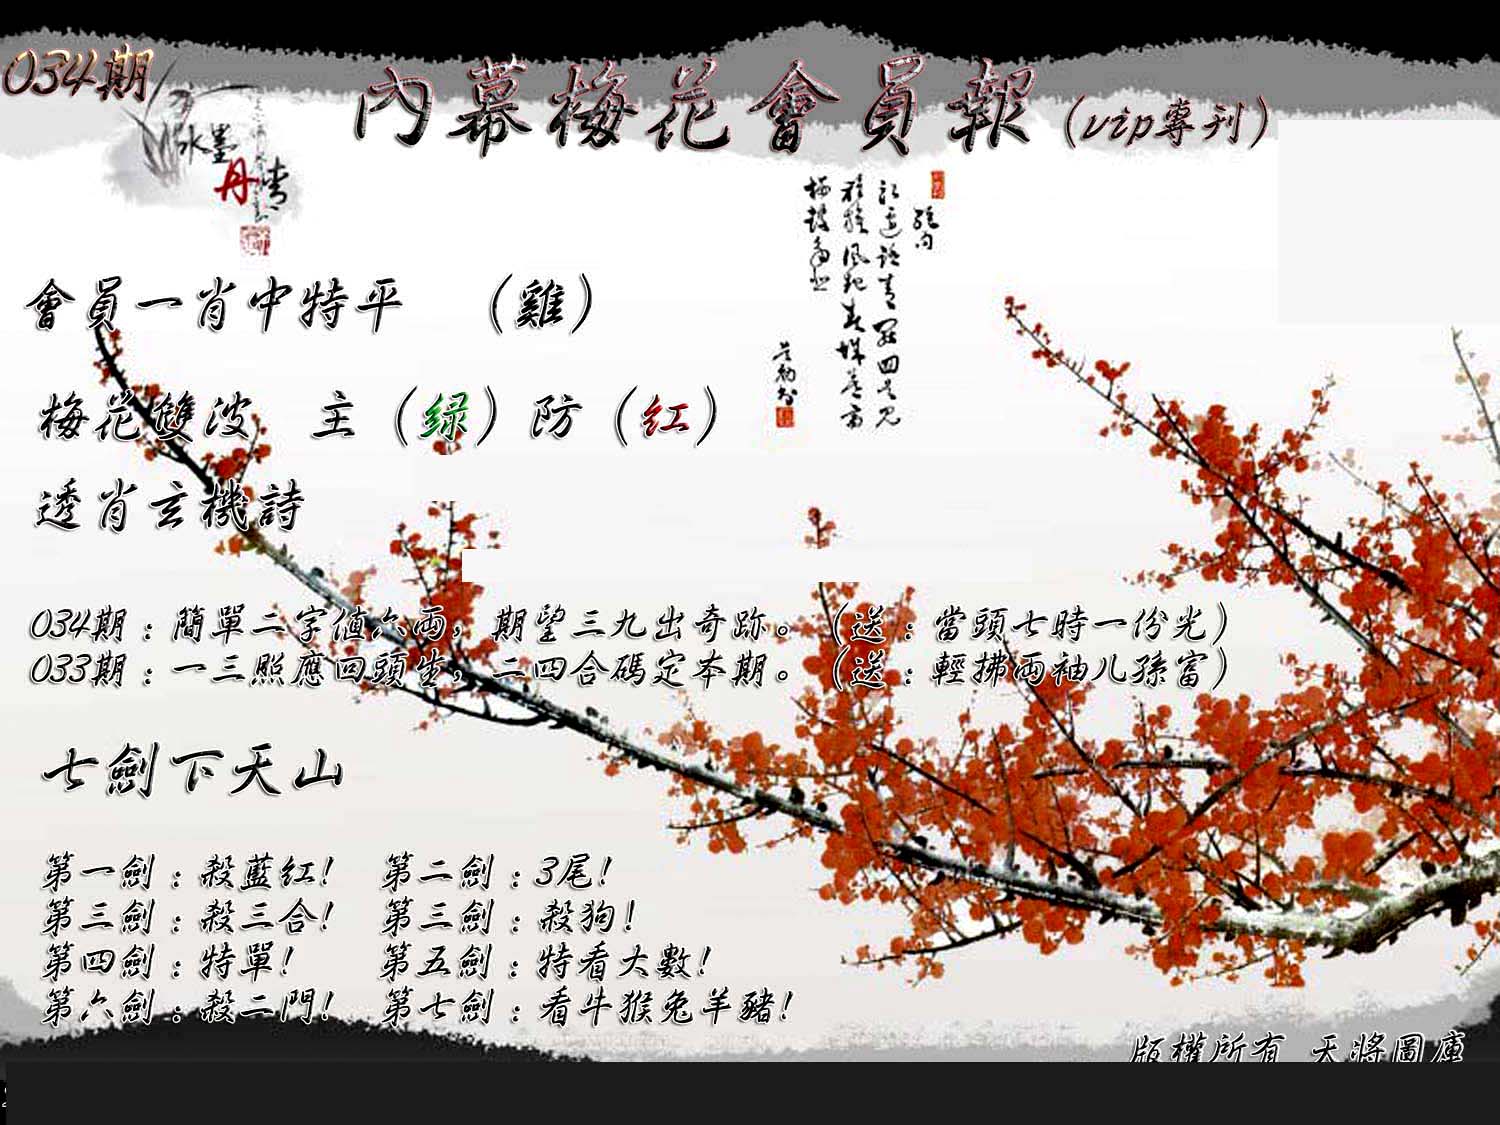 034期
內幕梅花會員報（vip專刊）
水墨
丹青
絕句
會員一肖中特平 （雞）
梅花雙波 主（绿）防（红）
透肖玄機詩
034期：簡單二字值六両，期望三九出奇跡。（送：當頭七時一份光）
033期：一三照應回頭生，二四合碼定本期。（送：輕拂両袖儿孫富）
七劍下天山
第一劍：殺藍红！ 第二劍：3尾！
第三劍：殺三合！ 第三劍：殺狗！
第四劍：特單！ 第五劍：特看大數！
第六劍：殺二門！ 第七劍：看牛猴兔羊豬！
版權所有 天將圖庫